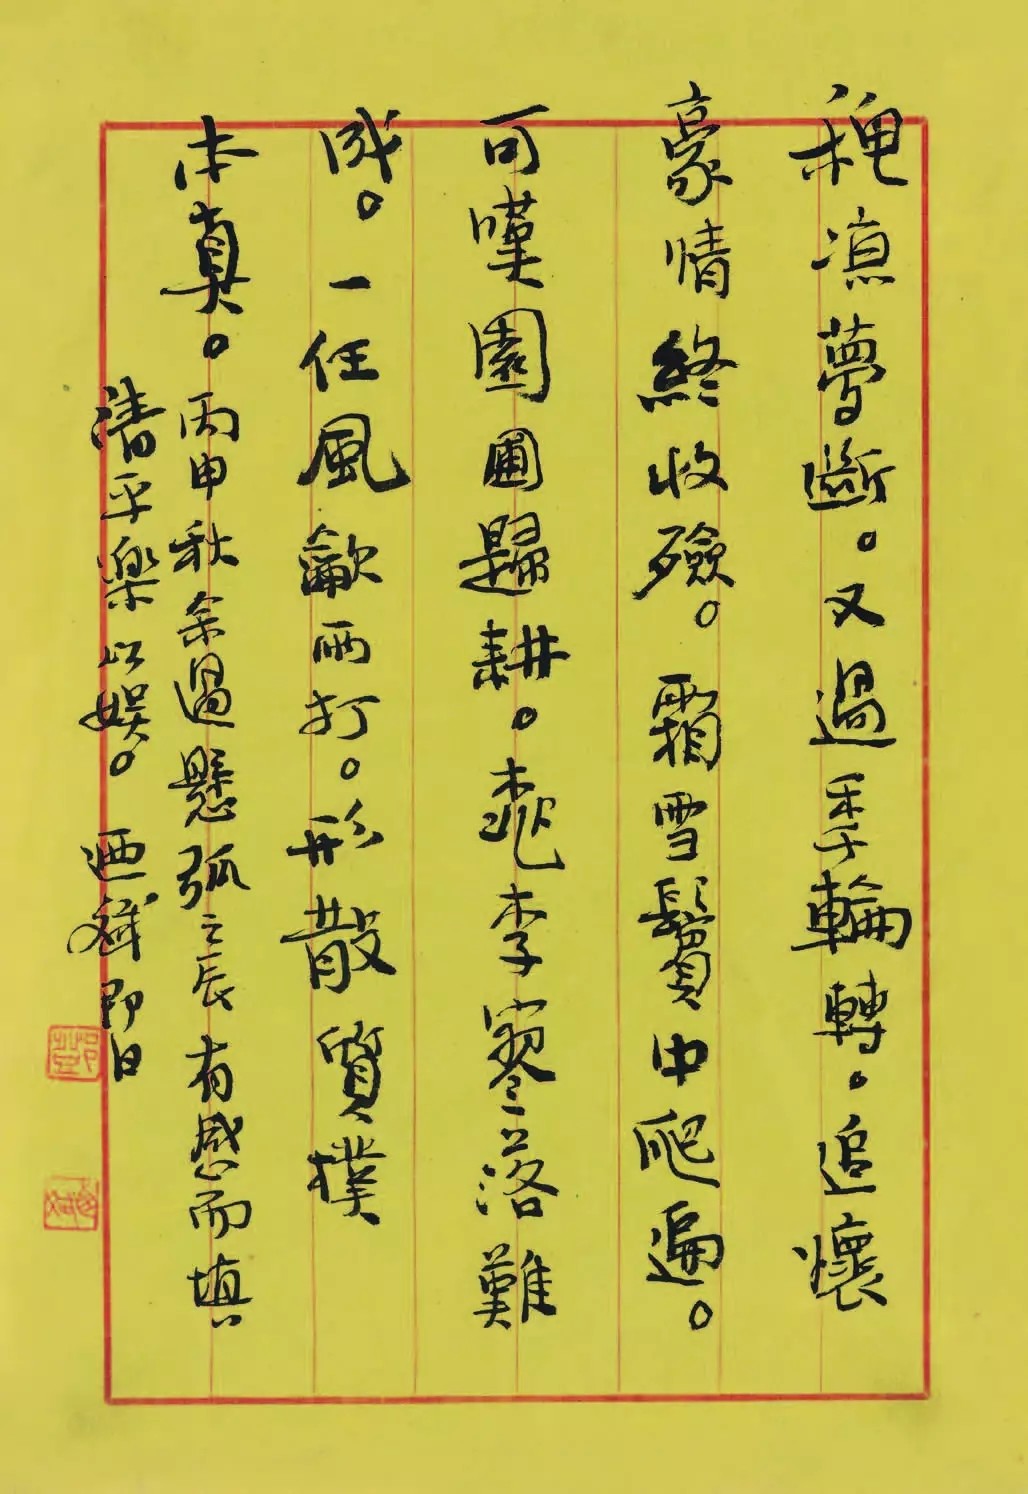 槐凉夢斷。又過秊輪轉。追懷
豪情終收殮。霜雪鬢中爬遍。
可嘆園圃歸耕。桃李寥落難
成。一任風龡雨打。形散質樸
本真。丙申秋余過懸弧之辰有感而填
清平樂以娛。迺斌即日